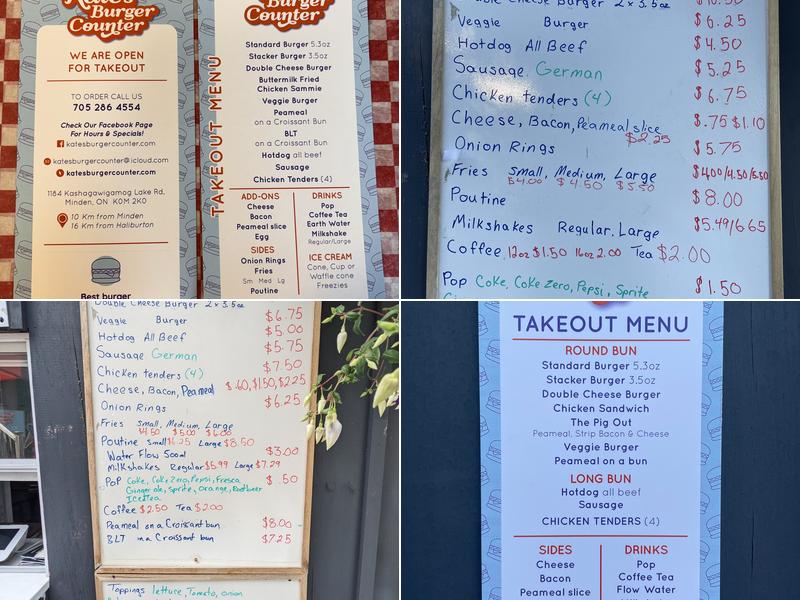 Kate's
Burger
Counter
WE ARE OPEN
FOR TAKEOUT
TO ORDER CALL US
705 286 4554
Check Our Facebook Page
For Hours & Specials!
katesburgercounter
katesburgercounter@icloud.com
katesburgercounter.com
1184 Kashagawigamog Lake Rd,
Minden, ON K0M 2K0
10 Km from Minden
16 Km from Haliburton
Best burger
Burger
Counter
TAKEOUT MENU
Standard Burger 5.3oz
Stacker Burger 3.5oz
Double Cheese Burger
Buttermilk Fried
Chicken Sammie
Veggie Burger
Peameal
on a Croissant Bun
BLT
on a Croissant Bun
Hotdog all beef
Sausage
Chicken Tenders (4)
ADD-ONS
Cheese
Bacon
Peameal slice
Egg
SIDES
Onion Rings
Fries
Sm Med Lg
Poutine
DRINKS
Pop
Coffee Tea
Earth Water
Milkshake
Regular/Large
ICE CREAM
Cone, Cup or
Waffle cone
Freezies
Double Cheese Burger 2 x 3.5oz
Veggie Burger $6.25
Hotdog All Beef $4.50
Sausage German $5.25
Chicken tenders (4) $6.75
Cheese, Bacon, Peameal slice $.75 $1.10
$2.25
Onion Rings $5.75
Fries Small, Medium, Large $4.00/4.50/5.50
$4.00 $4.50 $5.50
Poutine $8.00
Milkshakes Regular, Large $5.49/6.65
Coffee 12oz $1.50 16oz 2.00 Tea $2.00
Pop Coke, Coke Zero, Pepsi, Sprite $1.50
Double Cheese Burger 2 x 3.5oz
Veggie Burger $6.75
Hotdog All Beef $5.00
Sausage German $5.75
Chicken tenders (4) $7.50
Cheese, Bacon, Peameal $.60, $1.50, $2.25
Onion Rings $6.25
Fries Small, Medium, Large
$4.50 $5.00 $6.00
Poutine Small $6.25 Large $8.50
Water Flow 500ml $3.00
Milkshakes Regular $5.99 Large $7.29
Pop Coke, Coke Zero, Pepsi, Fresca $.50
Gingerale, Sprite, Orange, Rootbeer
Iced Tea
Coffee $2.50 Tea $2.00
Peameal on a Croissant bun $8.00
BLT on a Croissant bun $7.25
Toppings lettuce, Tomato, onion
TAKEOUT MENU
ROUND BUN
Standard Burger 5.3oz
Stacker Burger 3.5oz
Double Cheese Burger
Chicken Sandwich
The Pig Out
Peameal, Strip Bacon & Cheese
Veggie Burger
Peameal on a bun
LONG BUN
Hotdog all beef
Sausage
CHICKEN TENDERS (4)
SIDES
Cheese
Bacon
Peameal slice
DRINKS
Pop
Coffee Tea
Flow Water